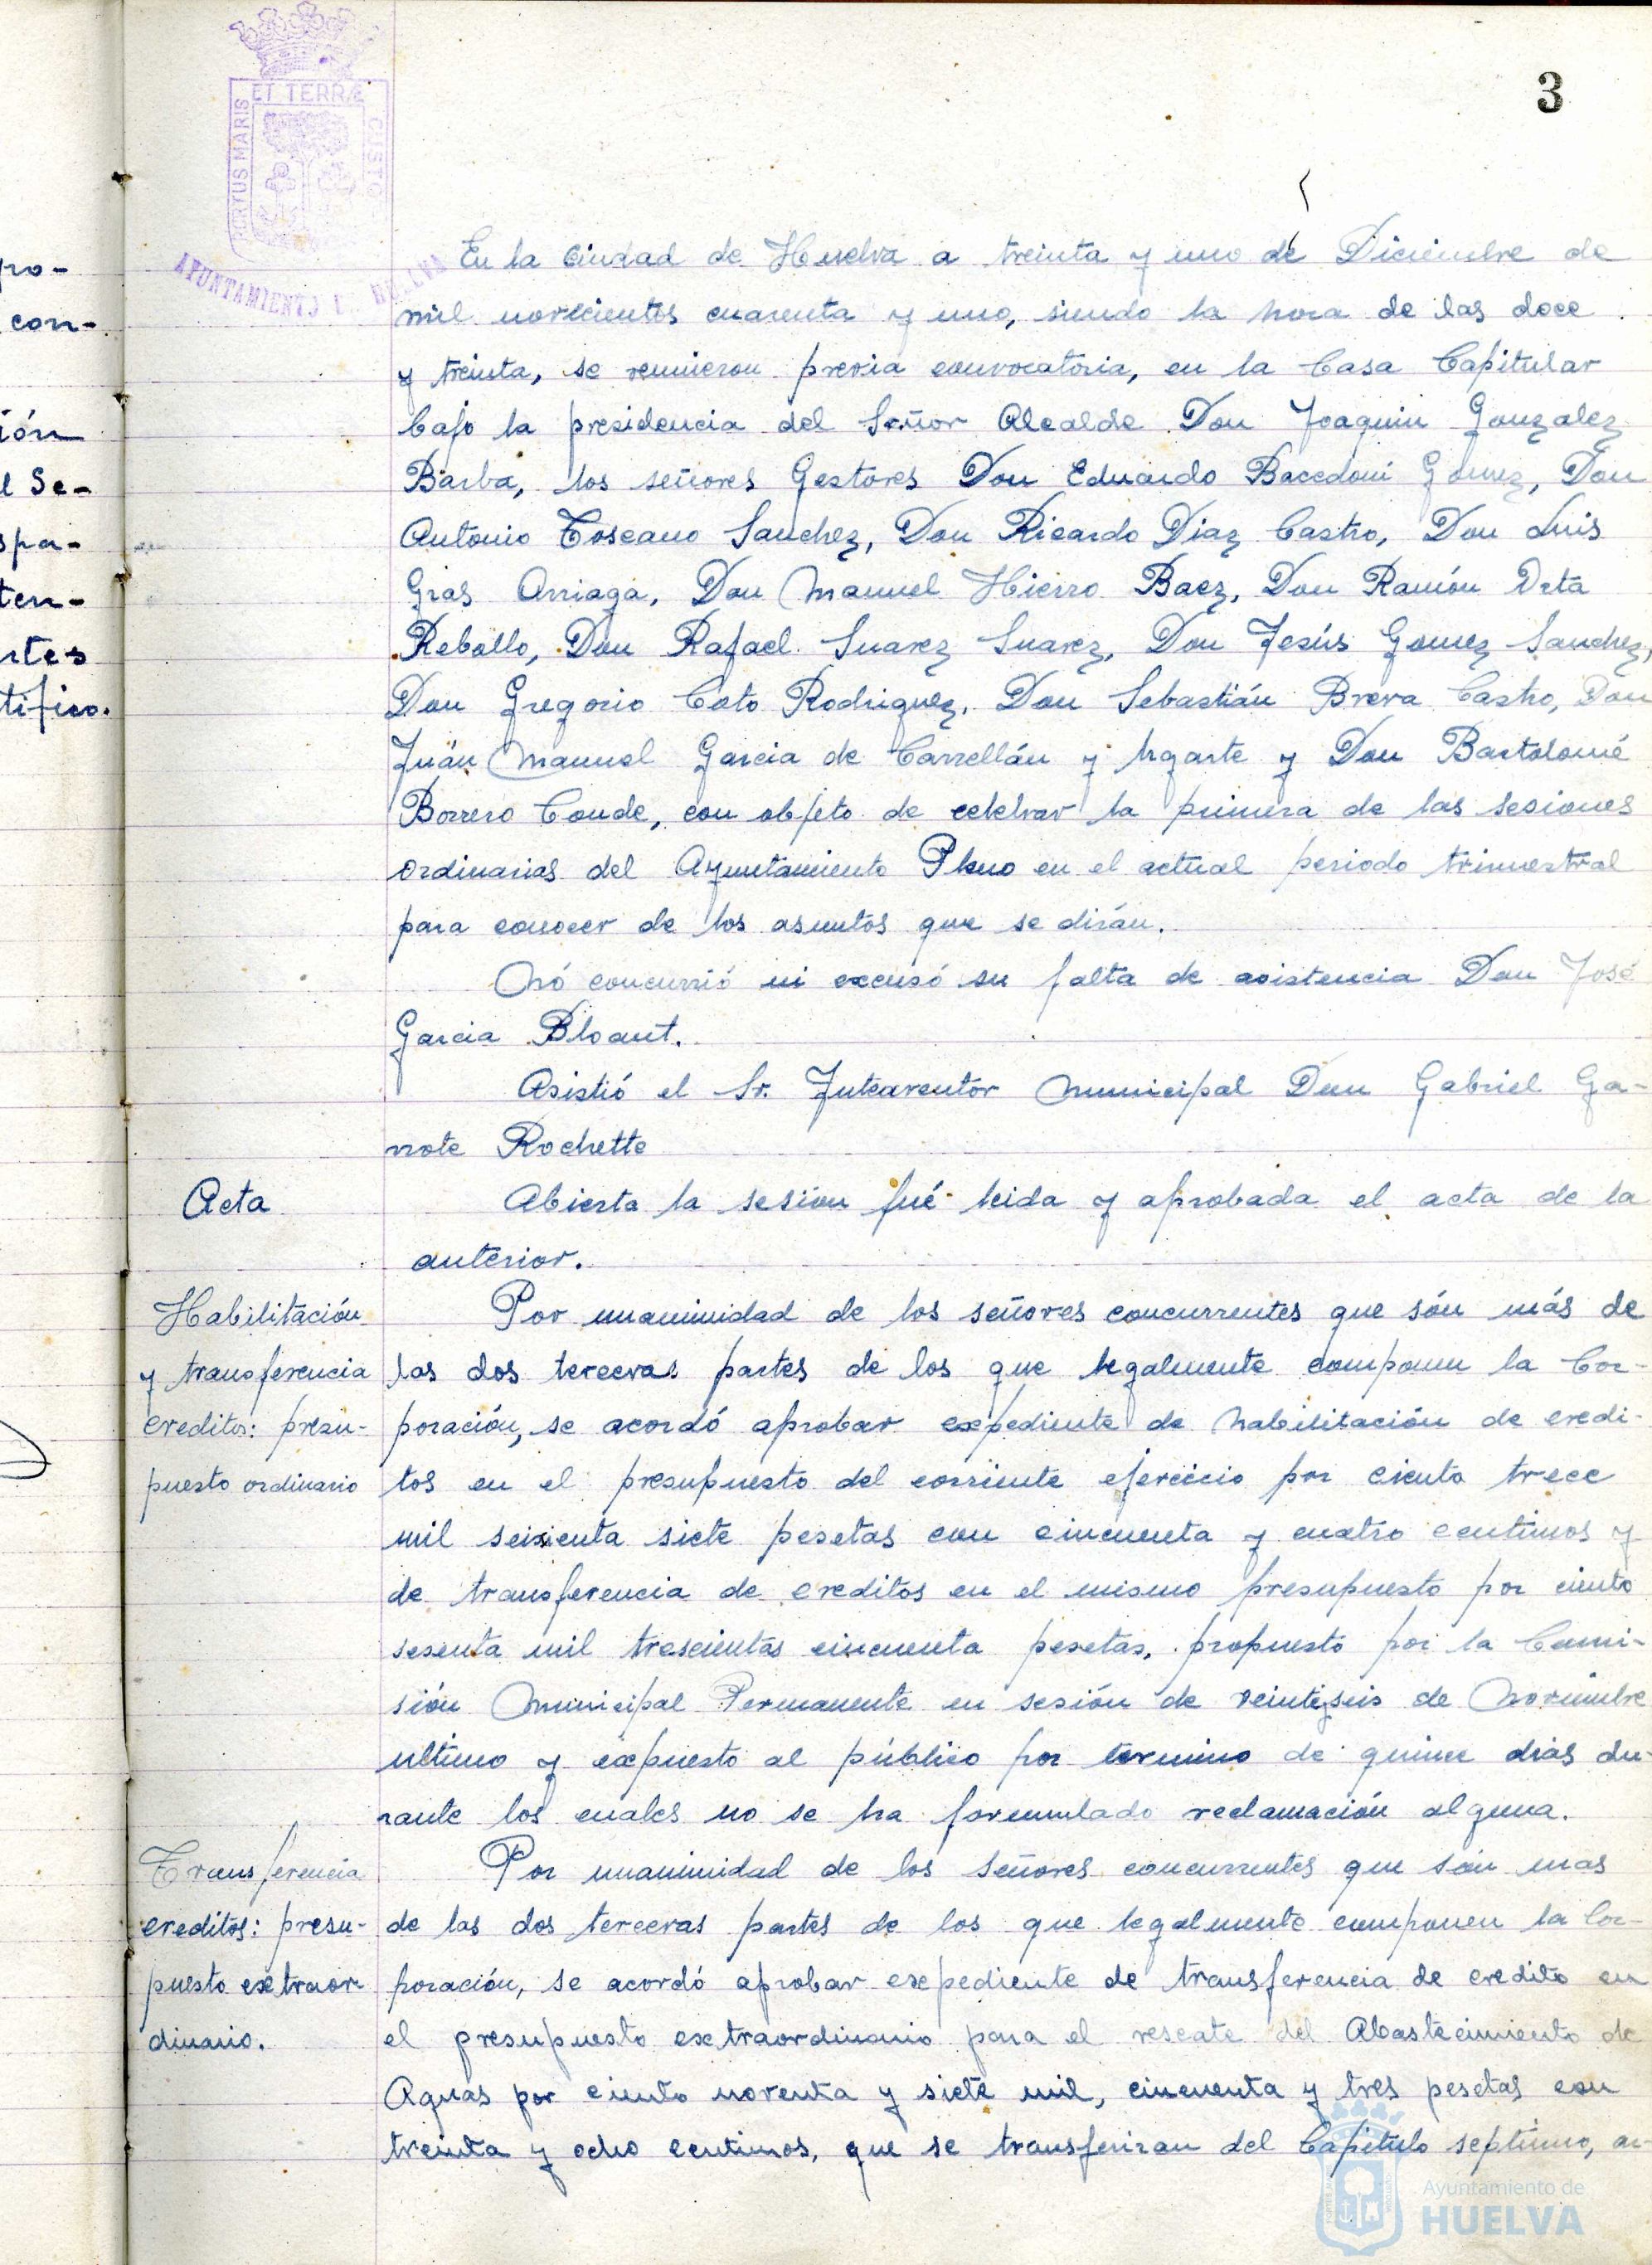 3
PORTUS MARIS
ET TERRÆ
CUSTO
AYUNTAMIENTO
pro-
con-
ión
l Se-
spa-
ten-
rtes
tifico.
En la Ciudad de Huelva a treinta y uno de Diciembre de
mil novecientos cuarenta y uno, siendo la hora de las doce
y treinta, se reunieron previa convocatoria, en la Casa Capitular
bajo la presidencia del Señor Alcalde Don Joaquin Gonzalez
Barba, los señores Gestores Don Eduardo Bacedoni Gomez, Don
Antonio Toscano Sanchez, Don Ricardo Diaz Castro, Don Luis
Gras Arriaga, Don Manuel Hierro Baez, Don Ramón Orta
Rebollo, Don Rafael Suarez Suarez, Don Jesús Gomez Sanchez,
Don Gregorio Coto Rodriguez, Don Sebastián Breva Castro, Don
Juán Manuel Garcia de Carrellán y Ugarte y Don Bartolomé
Borrero Conde, con objeto de celebrar la primera de las sesiones
ordinarias del Ayuntamiento Pleno en el actual periodo trimestral
para conocer de los asuntos que se dirán.
Nó concurrió ni excusó su falta de asistencia Don José
Garcia Bloant.
Asistió el Sr. Interventor Municipal Don Gabriel Ga-
rrote Rochette
Acta
Abierta la sesión fué leida y aprobada el acta de la
anterior.
Habilitación
y transferencia
creditos: presu-
puesto ordinario
Por unanimidad de los señores concurrentes que són más de
las dos terceras partes de los que legalmente componen la Cor-
poración, se acordó aprobar expediente de habilitación de credi-
tos en el presupuesto del corriente ejercicio por ciento trece
mil seisienta siete pesetas con cincuenta y cuatro centimos y
de transferencia de creditos en el mismo presupuesto por ciento
sesenta mil trescientas cincuenta pesetas, propuesto por la Comi-
sión Municipal Permanente en sesión de veintiseis de Noviembre
ultimo y expuesto al público por termino de quince dias du-
rante los cuales no se ha formulado reclamación alguna.
Transferencia
creditos: presu-
puesto extraor
dinario.
Por unanimidad de los señores concurrentes que són mas
de las dos terceras partes de los que legalmente componen la Cor-
poración, se acordó aprobar expediente de transferencia de credito en
el presupuesto extraordinario para el rescate del Abastecimiento de
Aguas por ciento noventa y siete mil, cincuenta y tres pesetas con
treinta y ocho centimos, que se transferiran del Capitulo septimo, ar-
Ayuntamiento de
HUELVA